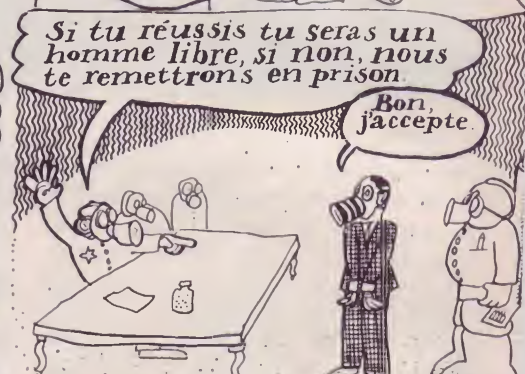 Si tu réussis tu seras un
homme libre, si non, nous
te remettrons en prison.
Bon,
j'accepte.